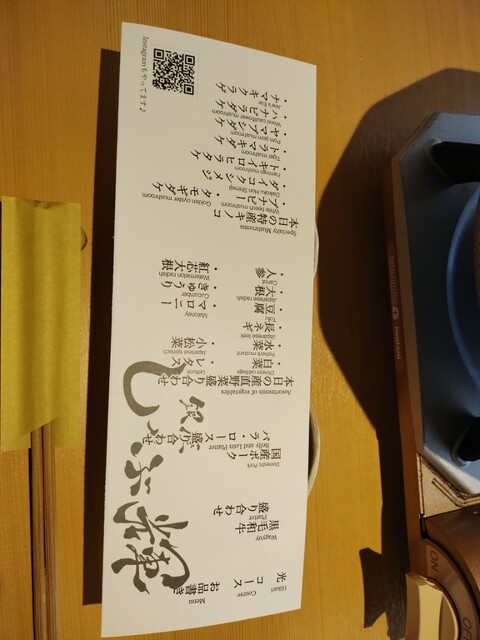 光コース
Hikari Course
お品書き
Menu
黒毛和牛
盛り合わせ
Wagyu Platter
国産ポーク
Domestic Pork
バラ・ロース盛り合わせ
Belly and Loin Platter
本日の産直野菜盛り合わせ
Assortments of vegetables
・白菜
Chinese cabbage
・水菜
Potherb mustard
・長ネギ
Japanese leek
・豆腐
Tofu
・大根
Japanese radish
・人参
Carrot
・レタス
Lettuce
・小松菜
Japanese spinach
・マロニー
Maloney
・きゅうり
Cucumber
・紅芯大根
Watermelon radish
本日の特産キノコ
Specialty Mushrooms
・タモギダケ
Golden oyster mushroom
・ブナピー
White beech mushroom
・ダイコクシメジ
Daikoku Hon Shimeji
・トキイロヒラタケ
Flamingo mushroom
・トラマキダケ
Tiger mushroom
・ヤマブシダケ
Pom mushroom
・ハナビラダケ
Wood cauliflower mushroom
・ナマキクラゲ
Jew's Ear
Instagramもやってます♪
Iwatani
ON